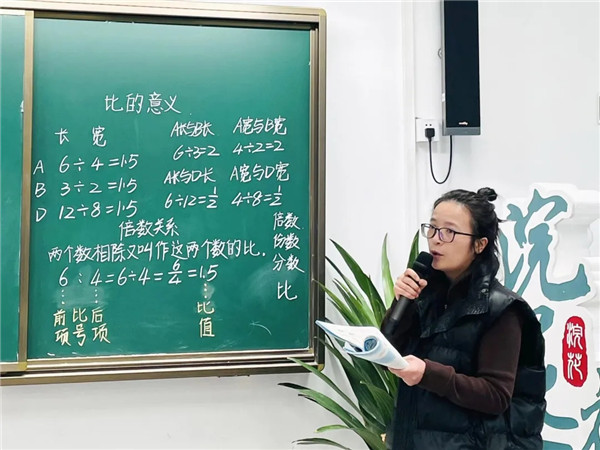 比的意义
长 宽 A长与B长 A宽与B宽
A 6÷4=1.5 6÷3=2 4÷2=2
B 3÷2=1.5 A长与D长 A宽与D宽
D 12÷8=1.5 6÷12=1/2 4÷8=1/2
倍数关系 倍数
两个数相除又叫作这两个数的比. 份数
6:4=6÷4=6/4=1.5 分数
比
前项 比号 后项 比值
浣
浣花